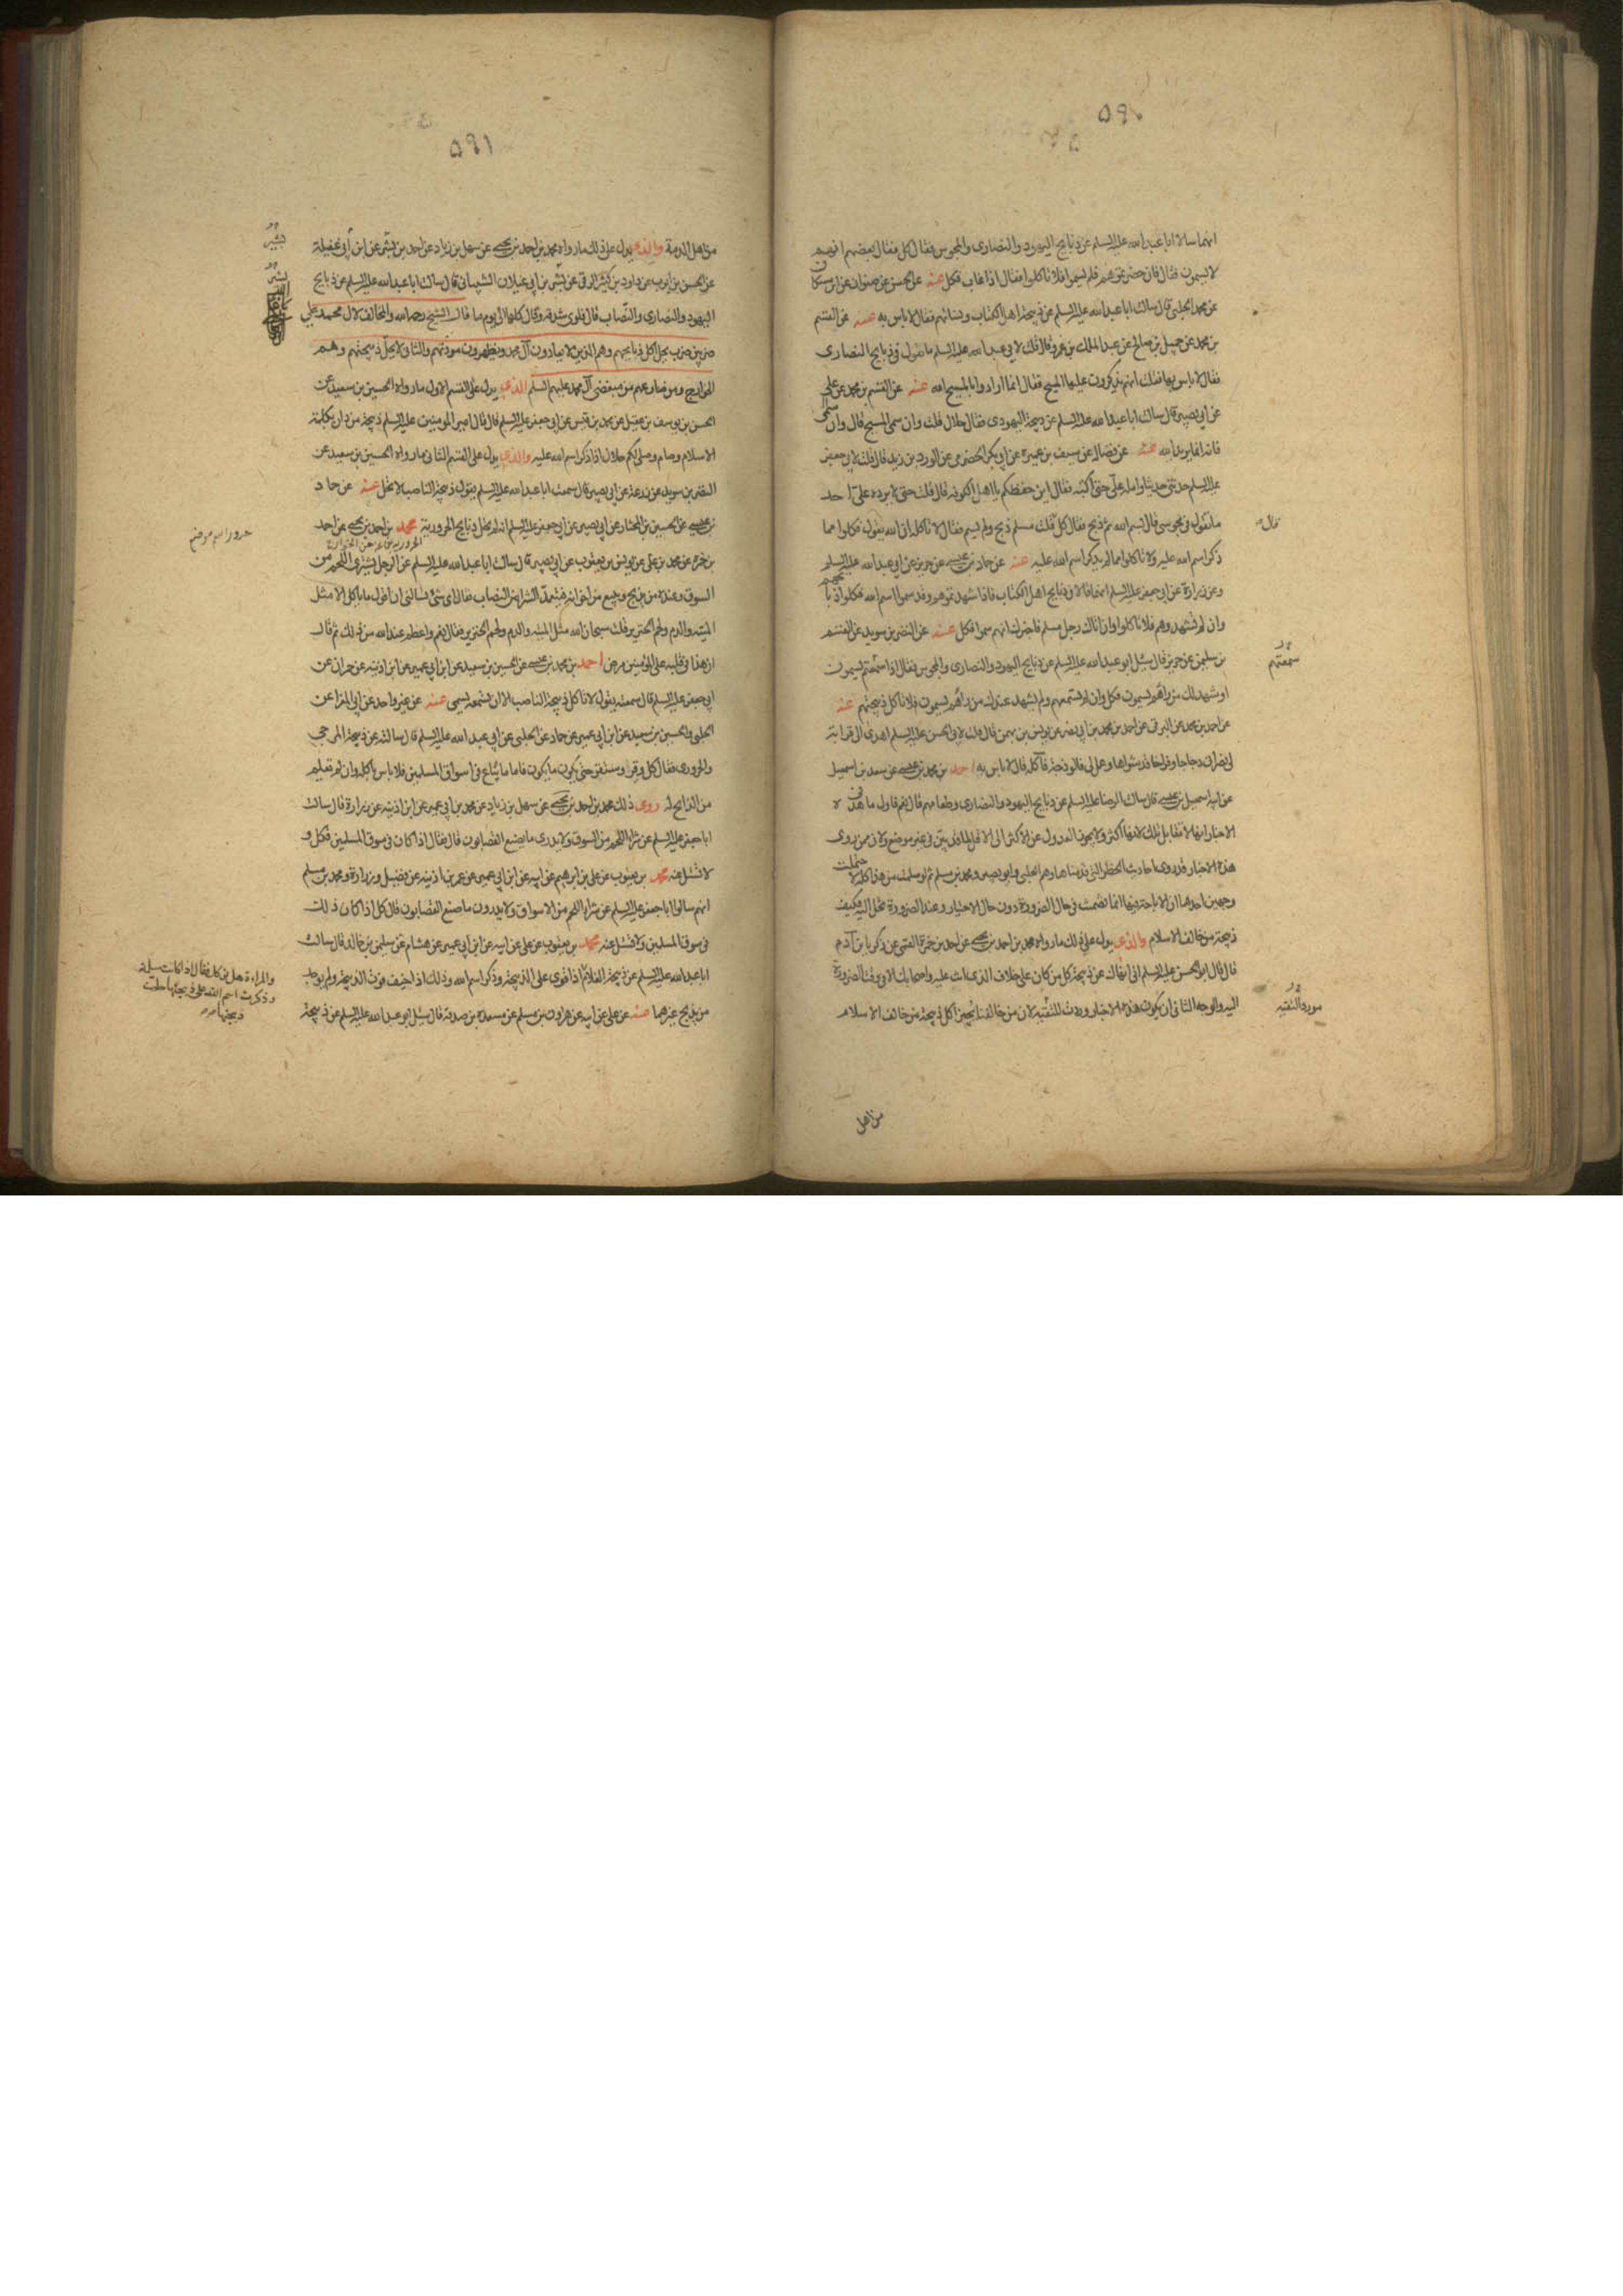 ٥٩٠
انهما سالا ابا عبد الله عليه السلم عن ذبايح اليهود والنصارى والمجوس فقال كل فقال بعضهم انهم
لا يسمون فقال فان حضرتموهم فلم يسموا فلا تاكلوا فقال اذا غاب فكل عنه عن الحسن عن صفوان عن ابن مسكان
عن محمد الحلبي قال سالت ابا عبد الله عليه السلم عن ذبيحة اهل الكتاب ونسائهم فقال لا باس به عنه عن القسم
بن محمد عن جميل بن صالح عن عبد الملك بن عمرو قال قلت لابي عبد الله عليه السلم ما تقول في ذبايح النصارى
فقال لا باس بها قلت انهم يذكرون عليها المسيح فقال انما ارادوا بالمسيح الله عنه عن القسم بن محمد عن علي
عن ابي بصير قال سالت ابا عبد الله عليه السلم عن ذبيحة اليهودي فقال حلال قلت وان سمى المسيح قال وان سمى
فانه انما يريد الله عنه عن فضالة عن سيف بن عميرة عن ابي بكر الحضرمي عن الورد بن زيد قال قلت لابي جعفر
عليه السلم حدثني حديثا وامله علي حتى اكتبه فقال اين حفظكم يا اهل الكوفة قال قلت حتى لا يرده علي احد
ما تقول في مجوسي قال بسم الله ثم ذبح فقال كل قلت مسلم ذبح ولم يسم فقال لا تاكله ان الله يقول فكلوا مما
قال
ذكر اسم الله عليه ولا تاكلوا مما لم يذكر اسم الله عليه عنه عن حماد بن عيسى عن حريز عن ابي عبد الله عليه السلم
وعن زرارة عن ابي جعفر عليه السلم انهما قالا في ذبايح اهل الكتاب فاذا شهدتموهم وقد سموا اسم الله فكلوا ذبايحهم
وان لم تشهدوهم فلا تاكلوا وان اتاك رجل مسلم فاخبرك انهم سموا فكل عنه عن النضر بن سويد عن القسم
بن سليمن عن حريز قال سئل ابو عبد الله عليه السلم عن ذبايح اليهود والنصارى والمجوس فقال اذا سمعتم يسمون
سمعتهم
او شهد لك من راهم يسمون فكل وان لم تسمعهم ولم يشهد عندك من راهم يسمون فلا تاكل ذبيحتهم عنه
عن احمد بن محمد عن البرقي عن احمد بن محمد بن ابي نصر عن يونس بن بهمن قال قلت لابي الحسن عليه السلم اهدى الي قرابة
لي نصراني دجاجا وفراخا قد شواها وعمل لي فالوذجة فآكله قال لا باس به احمد بن محمد بن عيسى عن سعد بن اسمعيل
عن ابيه اسمعيل بن عيسى قال سالت الرضا عليه السلم عن ذبايح اليهود والنصارى وطعامهم قال نعم فاول ما في هذه
الاخبار انها لا تقابل تلك لانها اكثر ولا يجوز العدول عن الاكثر الى الاقل لما قد بين في غير موضع ولان من روى
هذه الاخبار قد روى احاديث الحظر التي قدمناها وهم الحلبي وابو بصير ومحمد بن مسلم ثم لو سلمت من هذا كله لاحتملت
وجهين احدهما ان الاباحة فيها انما تضمنت في حال الضرورة دون حال الاختيار وعند الضرورة تحل الميتة فكيف
ذبيحة من خالف الاسلام والذي يدل على ذلك ما رواه محمد بن احمد بن يحيى عن احمد بن حمزة القمي عن زكريا بن آدم
قال قال ابو الحسن عليه السلم اني انهاك عن ذبيحة كل من كان على خلاف الذي انت عليه واصحابك الا في وقت الضرورة
اليه والوجه الثاني ان يكون هذه الاخبار وردت للتقية لان من خالفنا يجيز اكل ذبيحة من خالف الاسلام
مورد التقية
من اهل
٥٩١
من اهل الذمة والذي يدل على ذلك ما رواه محمد بن احمد بن يحيى عن سهل بن زياد عن احمد بن بشير عن ابن ابي عقيلة
بشير
عن الحسن بن ايوب عن داود بن كثير الرقي عن بشر بن ابي غيلان الشيباني قال سالت ابا عبد الله عليه السلم عن ذبايح
اليهود والنصارى والنصاب قال فلوى شدقه وقال كلها الى يوم ما قال الشيخ رحمه الله والمخالف لال محمد على
ضربين ضرب يحل اكل ذبايحهم وهم الذين لا يعادون آل محمد ويظهرون مودتهم والثاني لا يحل ذبيحتهم وهم
الخوارج ومن ضارعهم من مبغضي آل محمد عليهم السلم الذي يدل على القسم الاول ما رواه الحسين بن سعيد عن
الحسن بن يوسف بن عقيل عن محمد بن قيس عن ابي جعفر عليه السلم قال قال امير المومنين عليه السلم ذبيحة من دان بكلمة
الاسلام وصام وصلى لكم حلال اذا ذكر اسم الله عليه والذي يدل على القسم الثاني ما رواه الحسين بن سعيد عن
النضر بن سويد عن زرعة عن ابي بصير قال سمعت ابا عبد الله عليه السلم يقول ذبيحة الناصب لا تحل عنه عن حماد
بن عيسى عن الحسين بن المختار عن ابي بصير عن ابي جعفر عليه السلم انه لم يحل ذبايح الحرورية محمد بن احمد بن يحيى عن احمد
حرورا اسم موضع
بن حمزة عن محمد بن علي عن يونس بن يعقوب عن ابي بصير قال سالت ابا عبد الله عليه السلم عن الرجل يشترى اللحم من
السوق وعنده من يذبح ويبيع من اخوانه فيتعمد الشرا من النصاب فقال اى شي تسالني ان اقول ما ياكل الا مثل
الميتة والدم ولحم الخنزير قلت سبحان الله مثل الميتة والدم ولحم الخنزير فقال نعم واعظم عند الله من ذلك ثم قال
ان هذا في قلبه على المؤمنين مرض احمد بن محمد بن عيسى عن الحسين بن سعيد عن ابن ابي عمير عن ابن اذينة عن حمران عن
ابي جعفر عليه السلم قال سمعته يقول لا تاكل ذبيحة الناصب الا ان تسمعه يسمي عنه عن غير واحد عن ابي المغرا عن
الحلبي والحسين بن سعيد عن ابن ابي عمير عن حماد عن الحلبي عن ابي عبد الله عليه السلم قال سالته عن ذبيحة المرجي
والحروري فقال كل وقر واستقر حتى يكون ما يكون فاما ما يباع في اسواق المسلمين فلا باس باكله وان لم تعلم
من الذابح له روى ذلك محمد بن احمد بن يحيى عن سهل بن زياد عن محمد بن ابي عمير عن ابن اذينة عن زرارة قال سالت
ابا جعفر عليه السلم عن شراء اللحم من السوق ولا يدرى ما يصنع القصابون قال فقال اذا كان في سوق المسلمين فكل و
لا تسئل عنه محمد بن يعقوب عن علي بن ابرهيم عن ابيه عن ابن ابي عمير عن عمر بن اذينة عن فضيل وزرارة ومحمد بن مسلم
انهم سالوا ابا جعفر عليه السلم عن شراء اللحم من الاسواق ولا يدرون ما صنع القصابون قال كل اذا كان ذلك
في سوق المسلمين ولا تسئل عنه محمد بن يعقوب عن علي عن ابيه عن ابن ابي عمير عن هشام عن سليمن بن خالد قال سالت
ابا عبد الله عليه السلم عن ذبيحة الغلام اذا قوى على الذبيحة وذكر اسم الله وذلك اذا خيف فوت الذبيحة ولم يوجد
والمراءة هل يوكل فقال اذا كانت مسلمة
وذكرت اسم الله على ذبيحتها حلت
ذبيحتها
من يذبح غيرهما عنه عن علي عن ابيه عن هرون بن مسلم عن مسعدة بن صدقة قال سئل ابو عبد الله عليه السلم عن ذبيحة